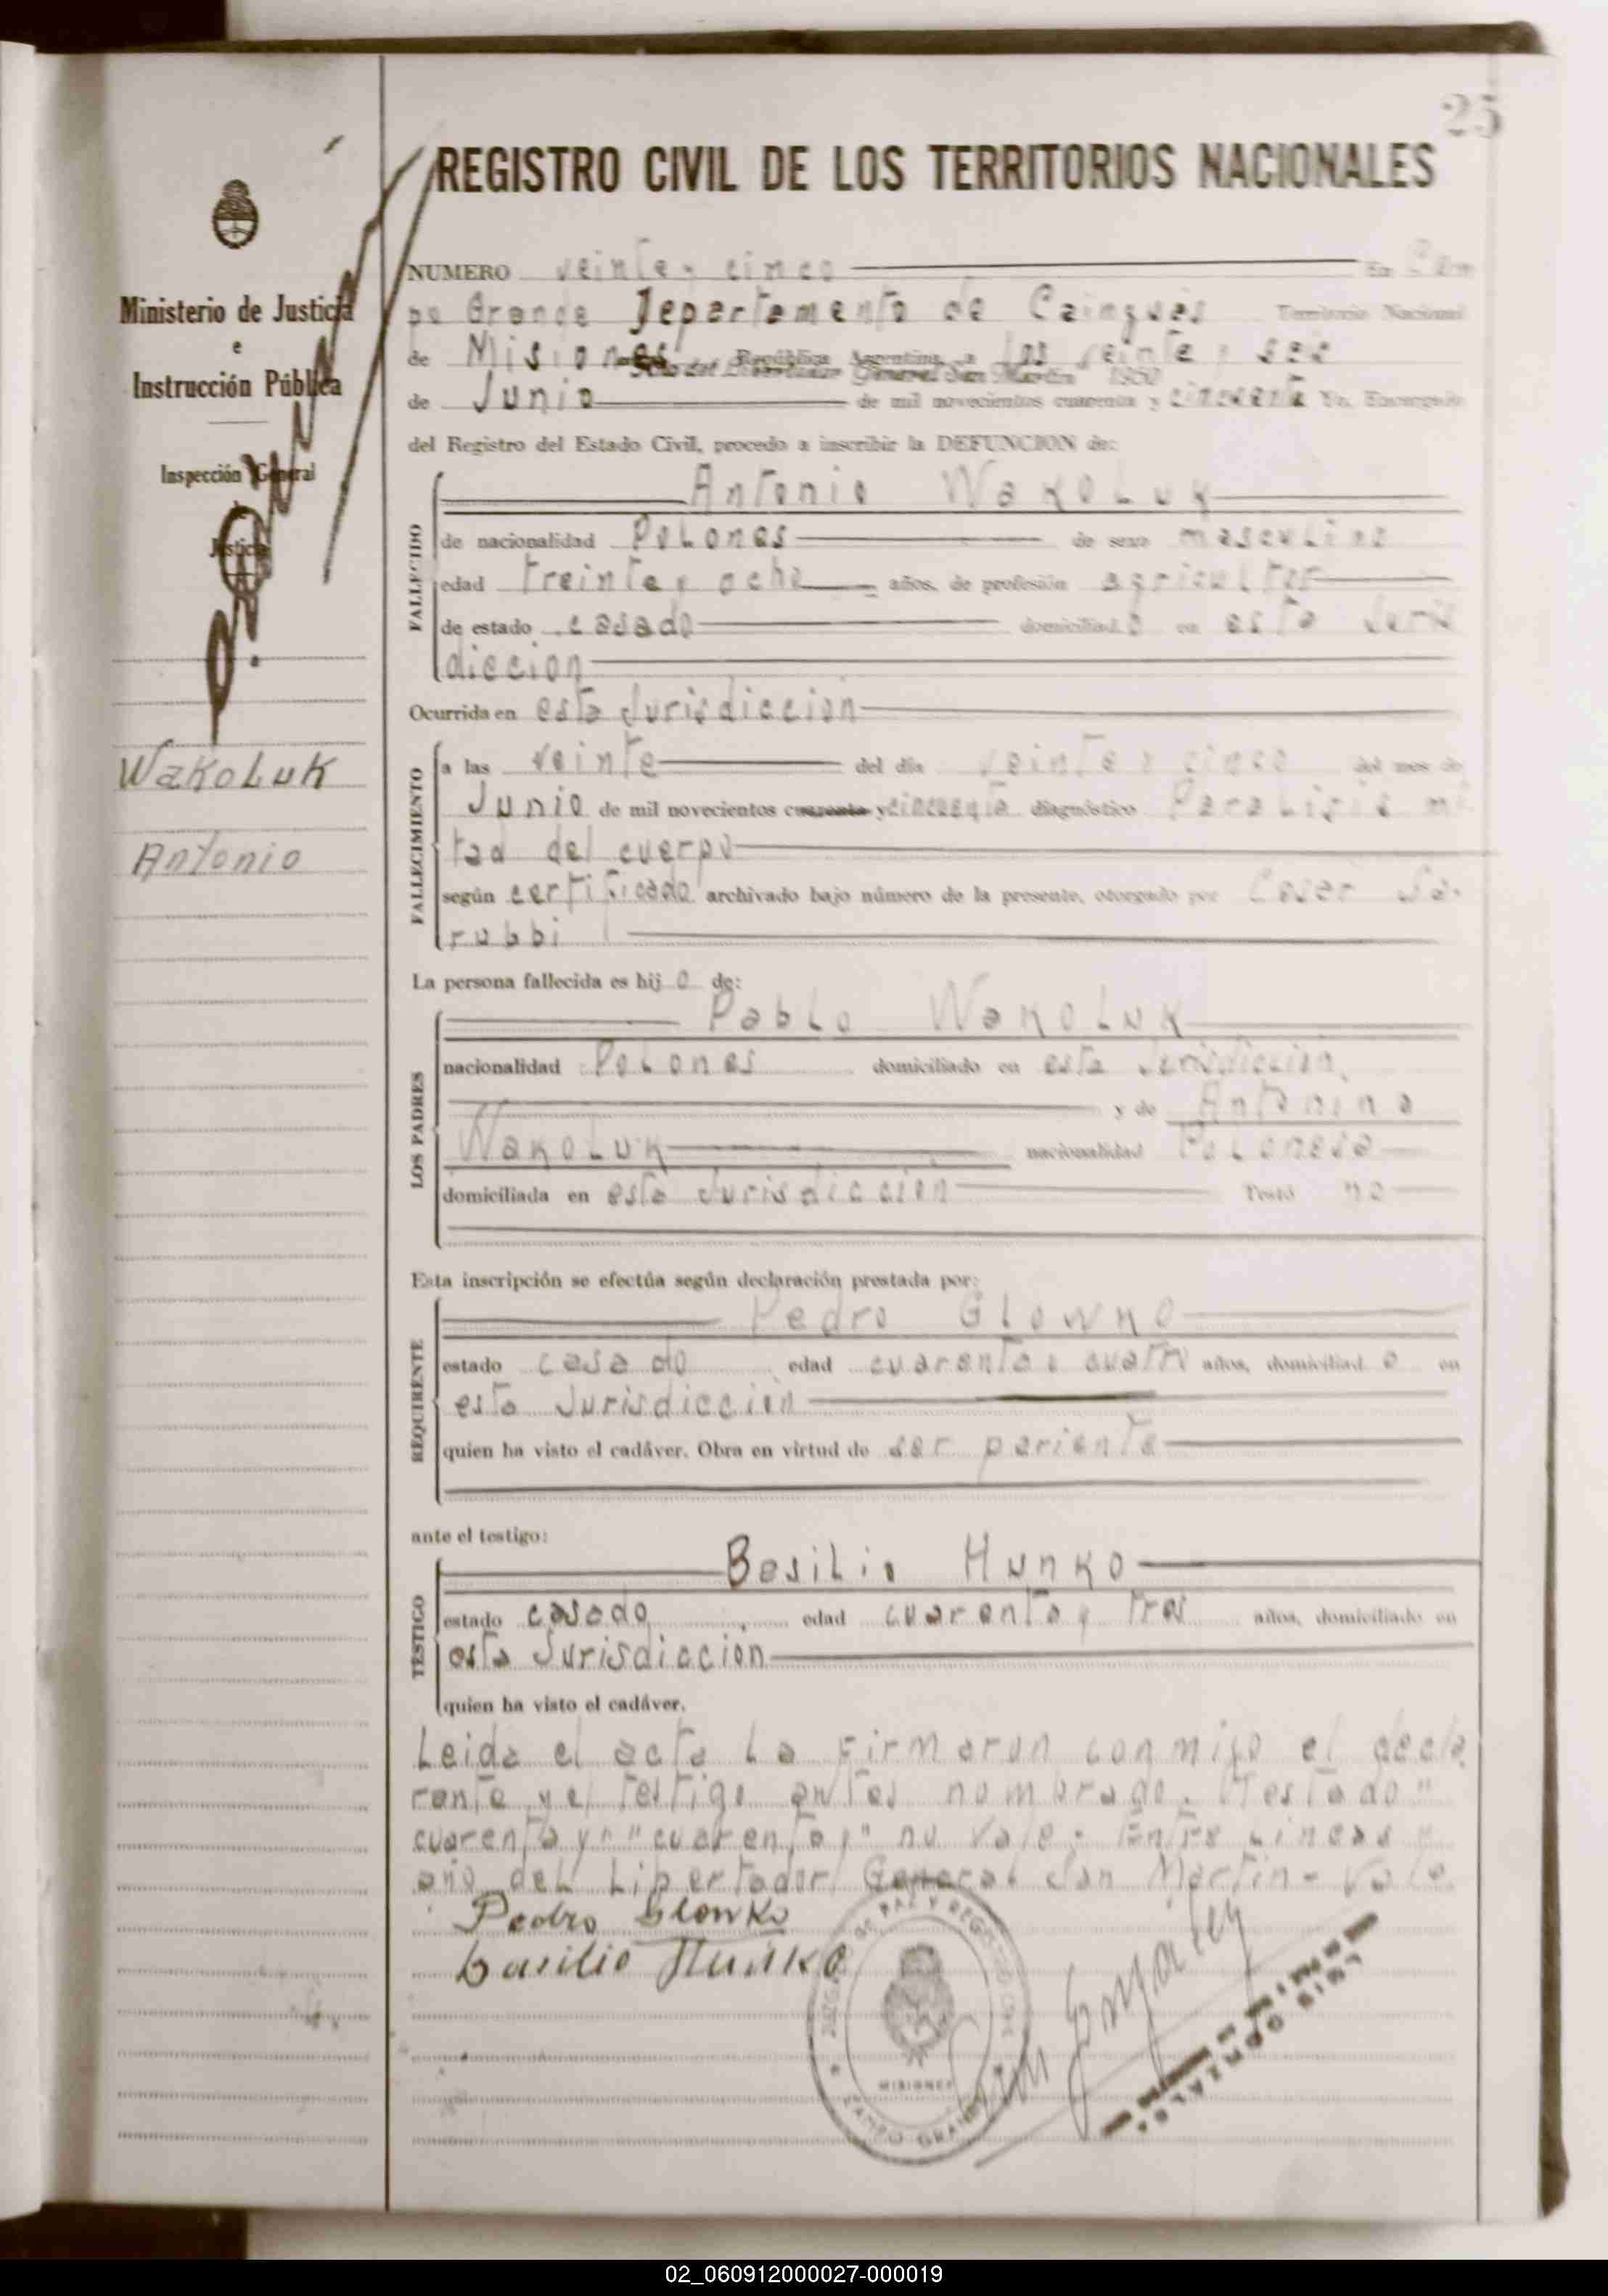 25
REGISTRO CIVIL DE LOS TERRITORIOS NACIONALES
Ministerio de Justicia
e
Instrucción Pública
Inspección General
de
Justicia
Wakoluk
Antonio
NUMERO veinte y cinco En Cam
po Grande Departamento de Cainguás Territorio Nacional
de Misiones República Argentina, a los veinte y seis
Año del Libertador General San Martin 1950
de Junio de mil novecientos cuarenta y cincuenta Yo, Encargado
del Registro del Estado Civil, procedo a inscribir la DEFUNCION de:
FALLECIDO
Antonio Wakoluk
de nacionalidad Polones de sexo masculino
edad treinta y ocho años, de profesión agricultor
de estado casado domiciliado en esta Juris
diccion
Ocurrida en esta Jurisdiccion
FALLECIMIENTO
a las veinte del día veinte y cinco del mes de
Junio de mil novecientos cuarenta y cincuenta diagnóstico Paralisis mi
tad del cuerpo
según certificado archivado bajo número de la presente, otorgado por Cesar Sa
rubbi
La persona fallecida es hijo de:
LOS PADRES
Pablo Wakoluk
nacionalidad Polones domiciliado en esta Jurisdiccion
y de Antonina
Wakoluk nacionalidad Polonesa
domiciliada en esta Jurisdiccion Testó no
Esta inscripción se efectúa según declaración prestada por:
REQUIRENTE
Pedro Glowko
estado casado edad cuarenta y cuatro años, domiciliado en
esta Jurisdiccion
quien ha visto el cadáver. Obra en virtud de ser pariente
ante el testigo:
TESTIGO
Basilio Hunko
estado casado edad cuarenta y tres años, domiciliado en
esta Jurisdiccion
quien ha visto el cadáver.
Leida el acta la firmaron conmigo el decla
rante y el testigo antes nombrado. Testado"
cuarenta y" "cuarenta," no vale. Entre Lineas
año del Libertador General San Martin - Vale
Pedro Glonko
Basilio Hunko
DE PAZ Y REGISTRO CIVIL
MISIONES
CAMPO GRANDE
LUIS GONZALEZ
02_060912000027-000019